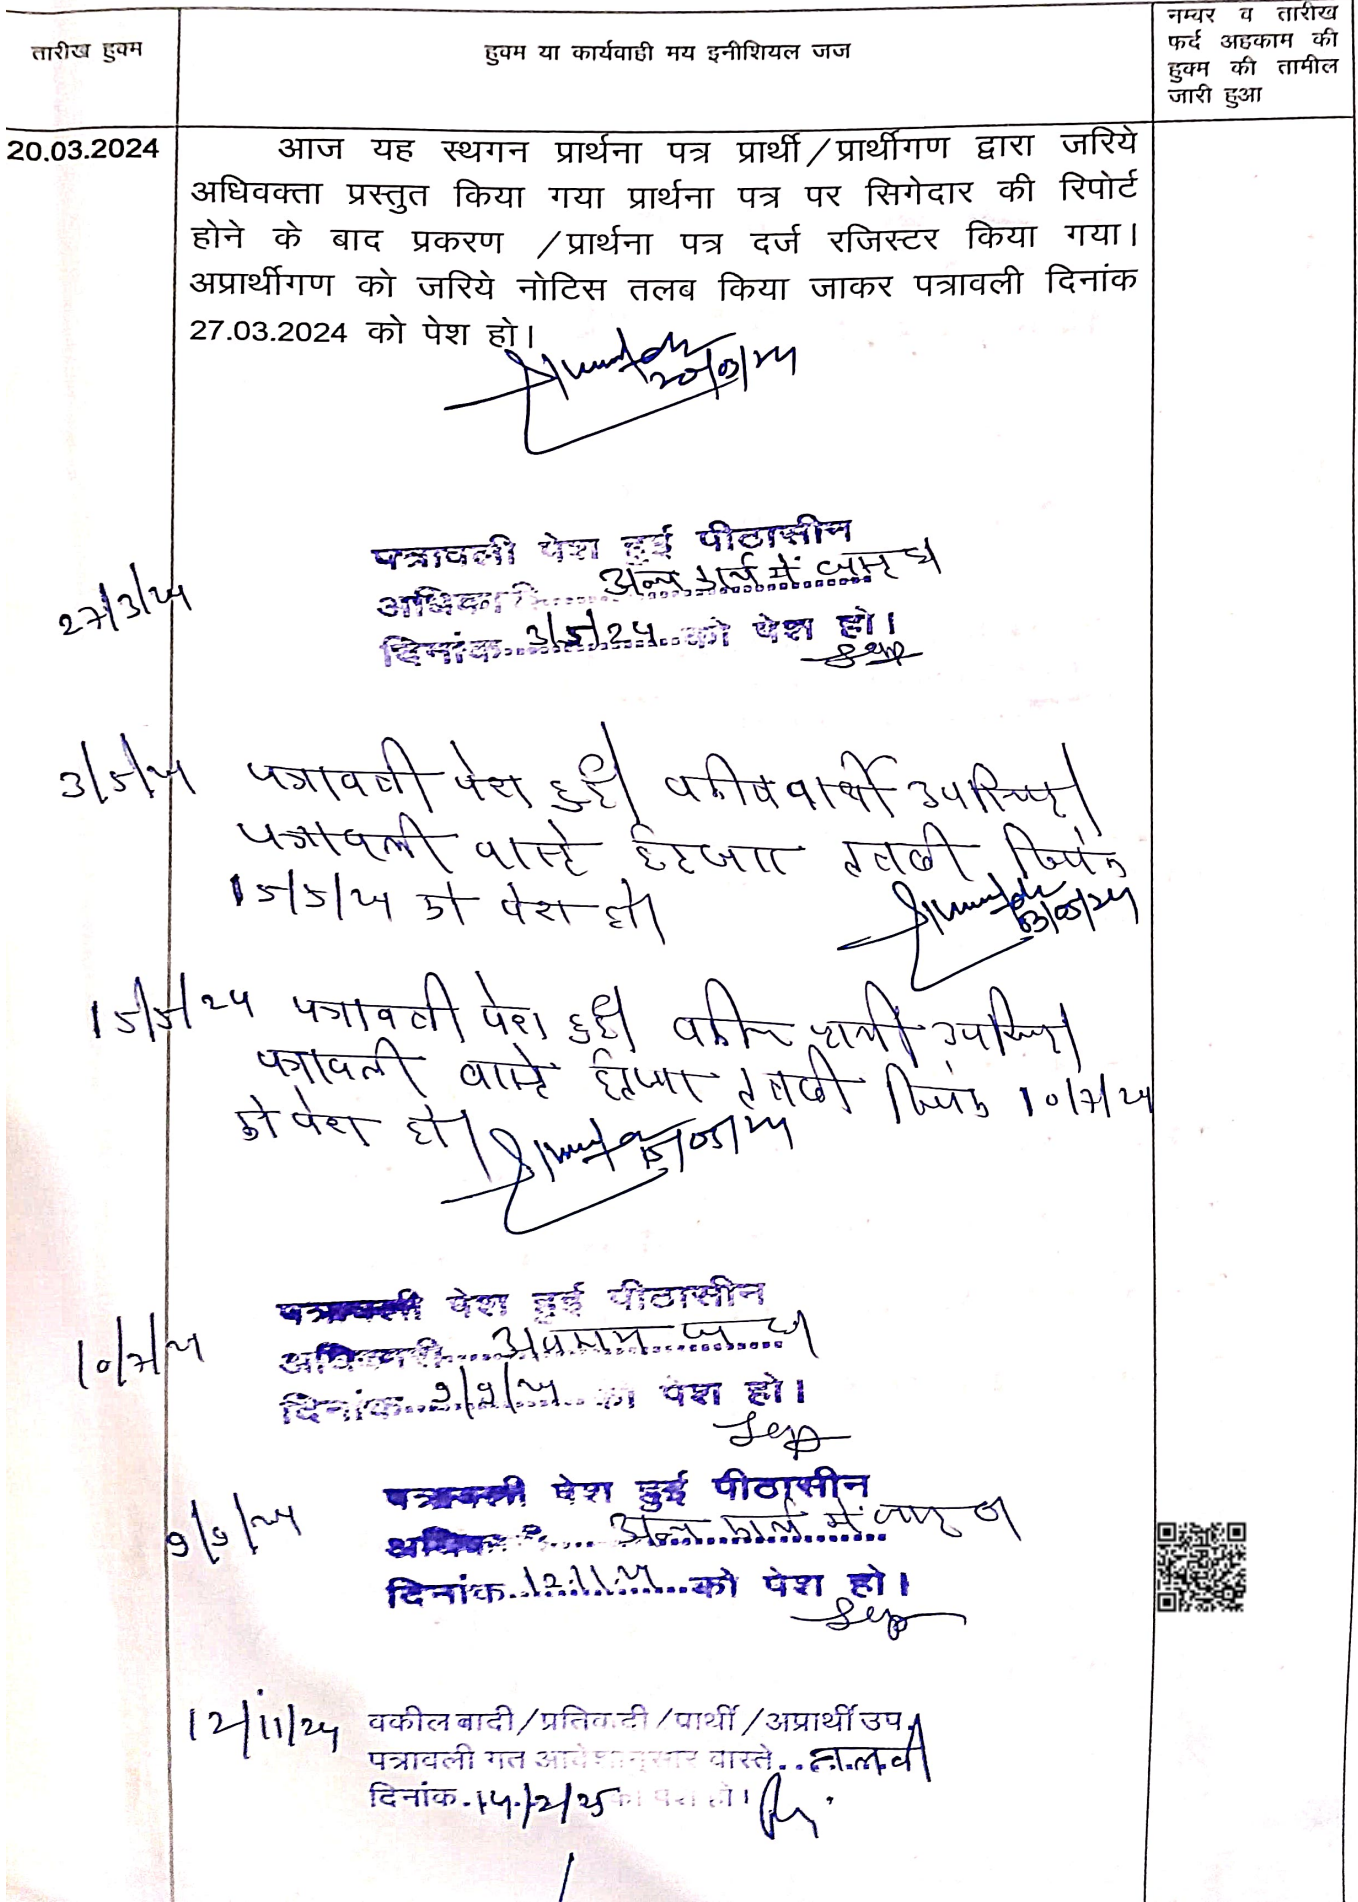 तारीख हुक्म
हुक्म या कार्यवाही मय इनीशियल जज
नम्बर व तारीख
फर्द अहकाम की
हुक्म की तामील
जारी हुआ
20.03.2024
आज यह स्थगन प्रार्थना पत्र प्रार्थी/प्रार्थीगण द्वारा जरिये
अधिवक्ता प्रस्तुत किया गया प्रार्थना पत्र पर सिगेदार की रिपोर्ट
होने के बाद प्रकरण /प्रार्थना पत्र दर्ज रजिस्टर किया गया।
अप्रार्थीगण को जरिये नोटिस तलब किया जाकर पत्रावली दिनांक
27.03.2024 को पेश हो।
20/03/24
27/3/24
पत्रावली पेश हुई पीठासीन
अधिकारी अन्य कार्य में व्यस्त
दिनांक 3/5/24 को पेश हो।
3/5/24 पत्रावली पेश हुई। वकील प्रार्थी उपस्थित।
पत्रावली वास्ते इन्तजार तलबी दिनांक
15/5/24 को पेश हो।
03/05/24
15/5/24 पत्रावली पेश हुई। वकील प्रार्थी उपस्थित।
पत्रावली वास्ते इन्तजार तलबी दिनांक 10/7/24
को पेश हो।
15/05/24
10/7/24
पत्रावली पेश हुई पीठासीन
अधिकारी
दिनांक 9/9/24 को पेश हो।
9/9/24
पत्रावली पेश हुई पीठासीन
अधिकारी अन्य कार्य में व्यस्त
दिनांक 12.11.24 को पेश हो।
12/11/24 वकील वादी/प्रतिवादी/प्रार्थी/अप्रार्थी उप.
पत्रावली गत आदेशानुसार वास्ते तलबी
दिनांक 14/2/25 को पेश हो।